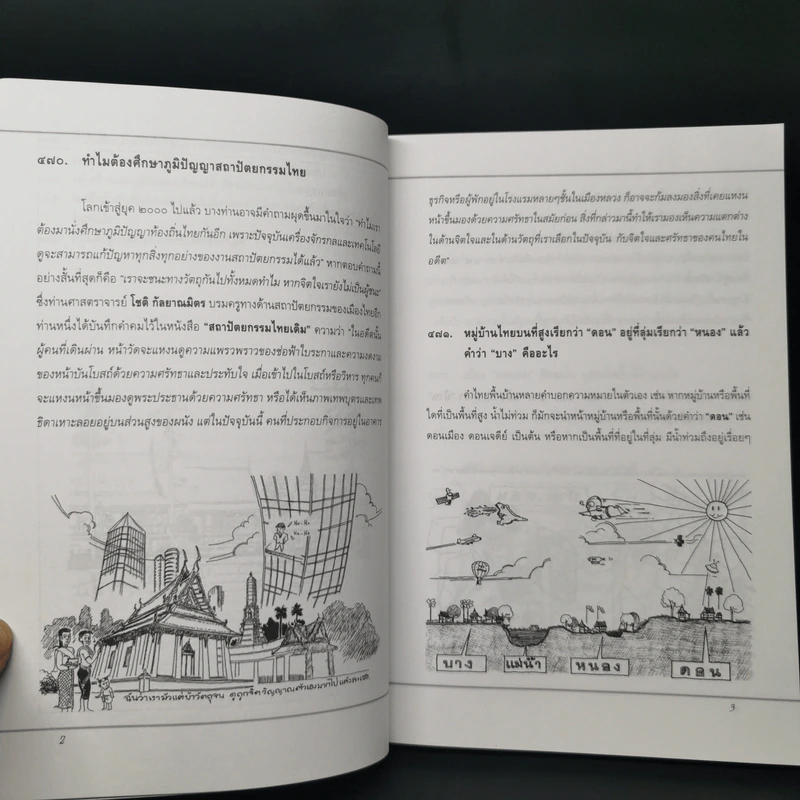 ๔๗๐. ทำไมต้องศึกษาภูมิปัญญาสถาปัตยกรรมไทย
โลกเข้าสู่ยุค ๒๐๐๐ ไปแล้ว บางท่านอาจมีคำถามผุดขึ้นมาในใจว่า "ทำไมเรา
ต้องมานั่งศึกษาภูมิปัญญาท้องถิ่นไทยกันอีก เพราะปัจจุบันเครื่องจักรกลและเทคโนโลยี
ดูจะสามารถแก้ปัญหาทุกสิ่งทุกอย่างของงานสถาปัตยกรรมได้แล้ว" หากตอบคำถามนี้
อย่างสั้นที่สุดก็คือ "เราจะชนะทางวัตถุกันไปทั้งหมดทำไม หากจิตใจเรายังไม่เป็นผู้ชนะ"
ซึ่งท่านศาสตราจารย์ โชติ กัลยาณมิตร บรมครูทางด้านสถาปัตยกรรมของเมืองไทยอีก
ท่านหนึ่งได้บันทึกคำคมไว้ในหนังสือ "สถาปัตยกรรมไทยเดิม" ความว่า "ในอดีตนั้น
ผู้คนที่เดินผ่าน หน้าวัดจะแหงนดูความแพรวพราวของช่อฟ้าใบระกาและความงดงาม
ของหน้าบันโบสถ์ด้วยความศรัทธาและประทับใจ เมื่อเข้าไปในโบสถ์หรือวิหาร ทุกคนก็
จะแหงนหน้าขึ้นมองดูพระประธานด้วยความศรัทธา หรือได้เห็นภาพเทพบุตรและเทพ
ธิดาเหาะลอยอยู่บนส่วนสูงของผนัง แต่ในปัจจุบันนี้ คนที่ประกอบกิจการอยู่ในอาคาร
ฉันว่าเรามัวแต่บ้าวัตถุจน ดูถูกจิตวิญญาณตัวเองมากไปแล้วละเธอ
2
ธุรกิจหรือผู้พักอยู่ในโรงแรมหลายๆชั้นในเมืองหลวง ก็อาจจะก้มลงมองสิ่งที่เคยแหงน
หน้าขึ้นมองด้วยความศรัทธาในสมัยก่อน สิ่งที่กล่าวมานี้ทำให้เรามองเห็นความแตกต่าง
ในด้านจิตใจและในด้านวัตถุที่เราเลือกในปัจจุบัน กับจิตใจและศรัทธาของคนไทยใน
อดีต"
๔๗๑. หมู่บ้านไทยบนที่สูงเรียกว่า "ดอน" อยู่ที่ลุ่มเรียกว่า "หนอง" แล้ว
คำว่า "บาง" คืออะไร
คำไทยพื้นบ้านหลายคำบอกความหมายในตัวเอง เช่น หากหมู่บ้านหรือพื้นที่
ใดที่เป็นพื้นที่สูง น้ำไม่ท่วม ก็มักจะนำหน้าหมู่บ้านหรือพื้นที่นั้นด้วยคำว่า "ดอน" เช่น
ดอนเมือง ดอนเจดีย์ เป็นต้น หรือหากเป็นพื้นที่ที่อยู่ในที่ลุ่ม มีน้ำท่วมถึงอยู่เรื่อยๆ
บาง แม่น้ำ หนอง ดอน
3